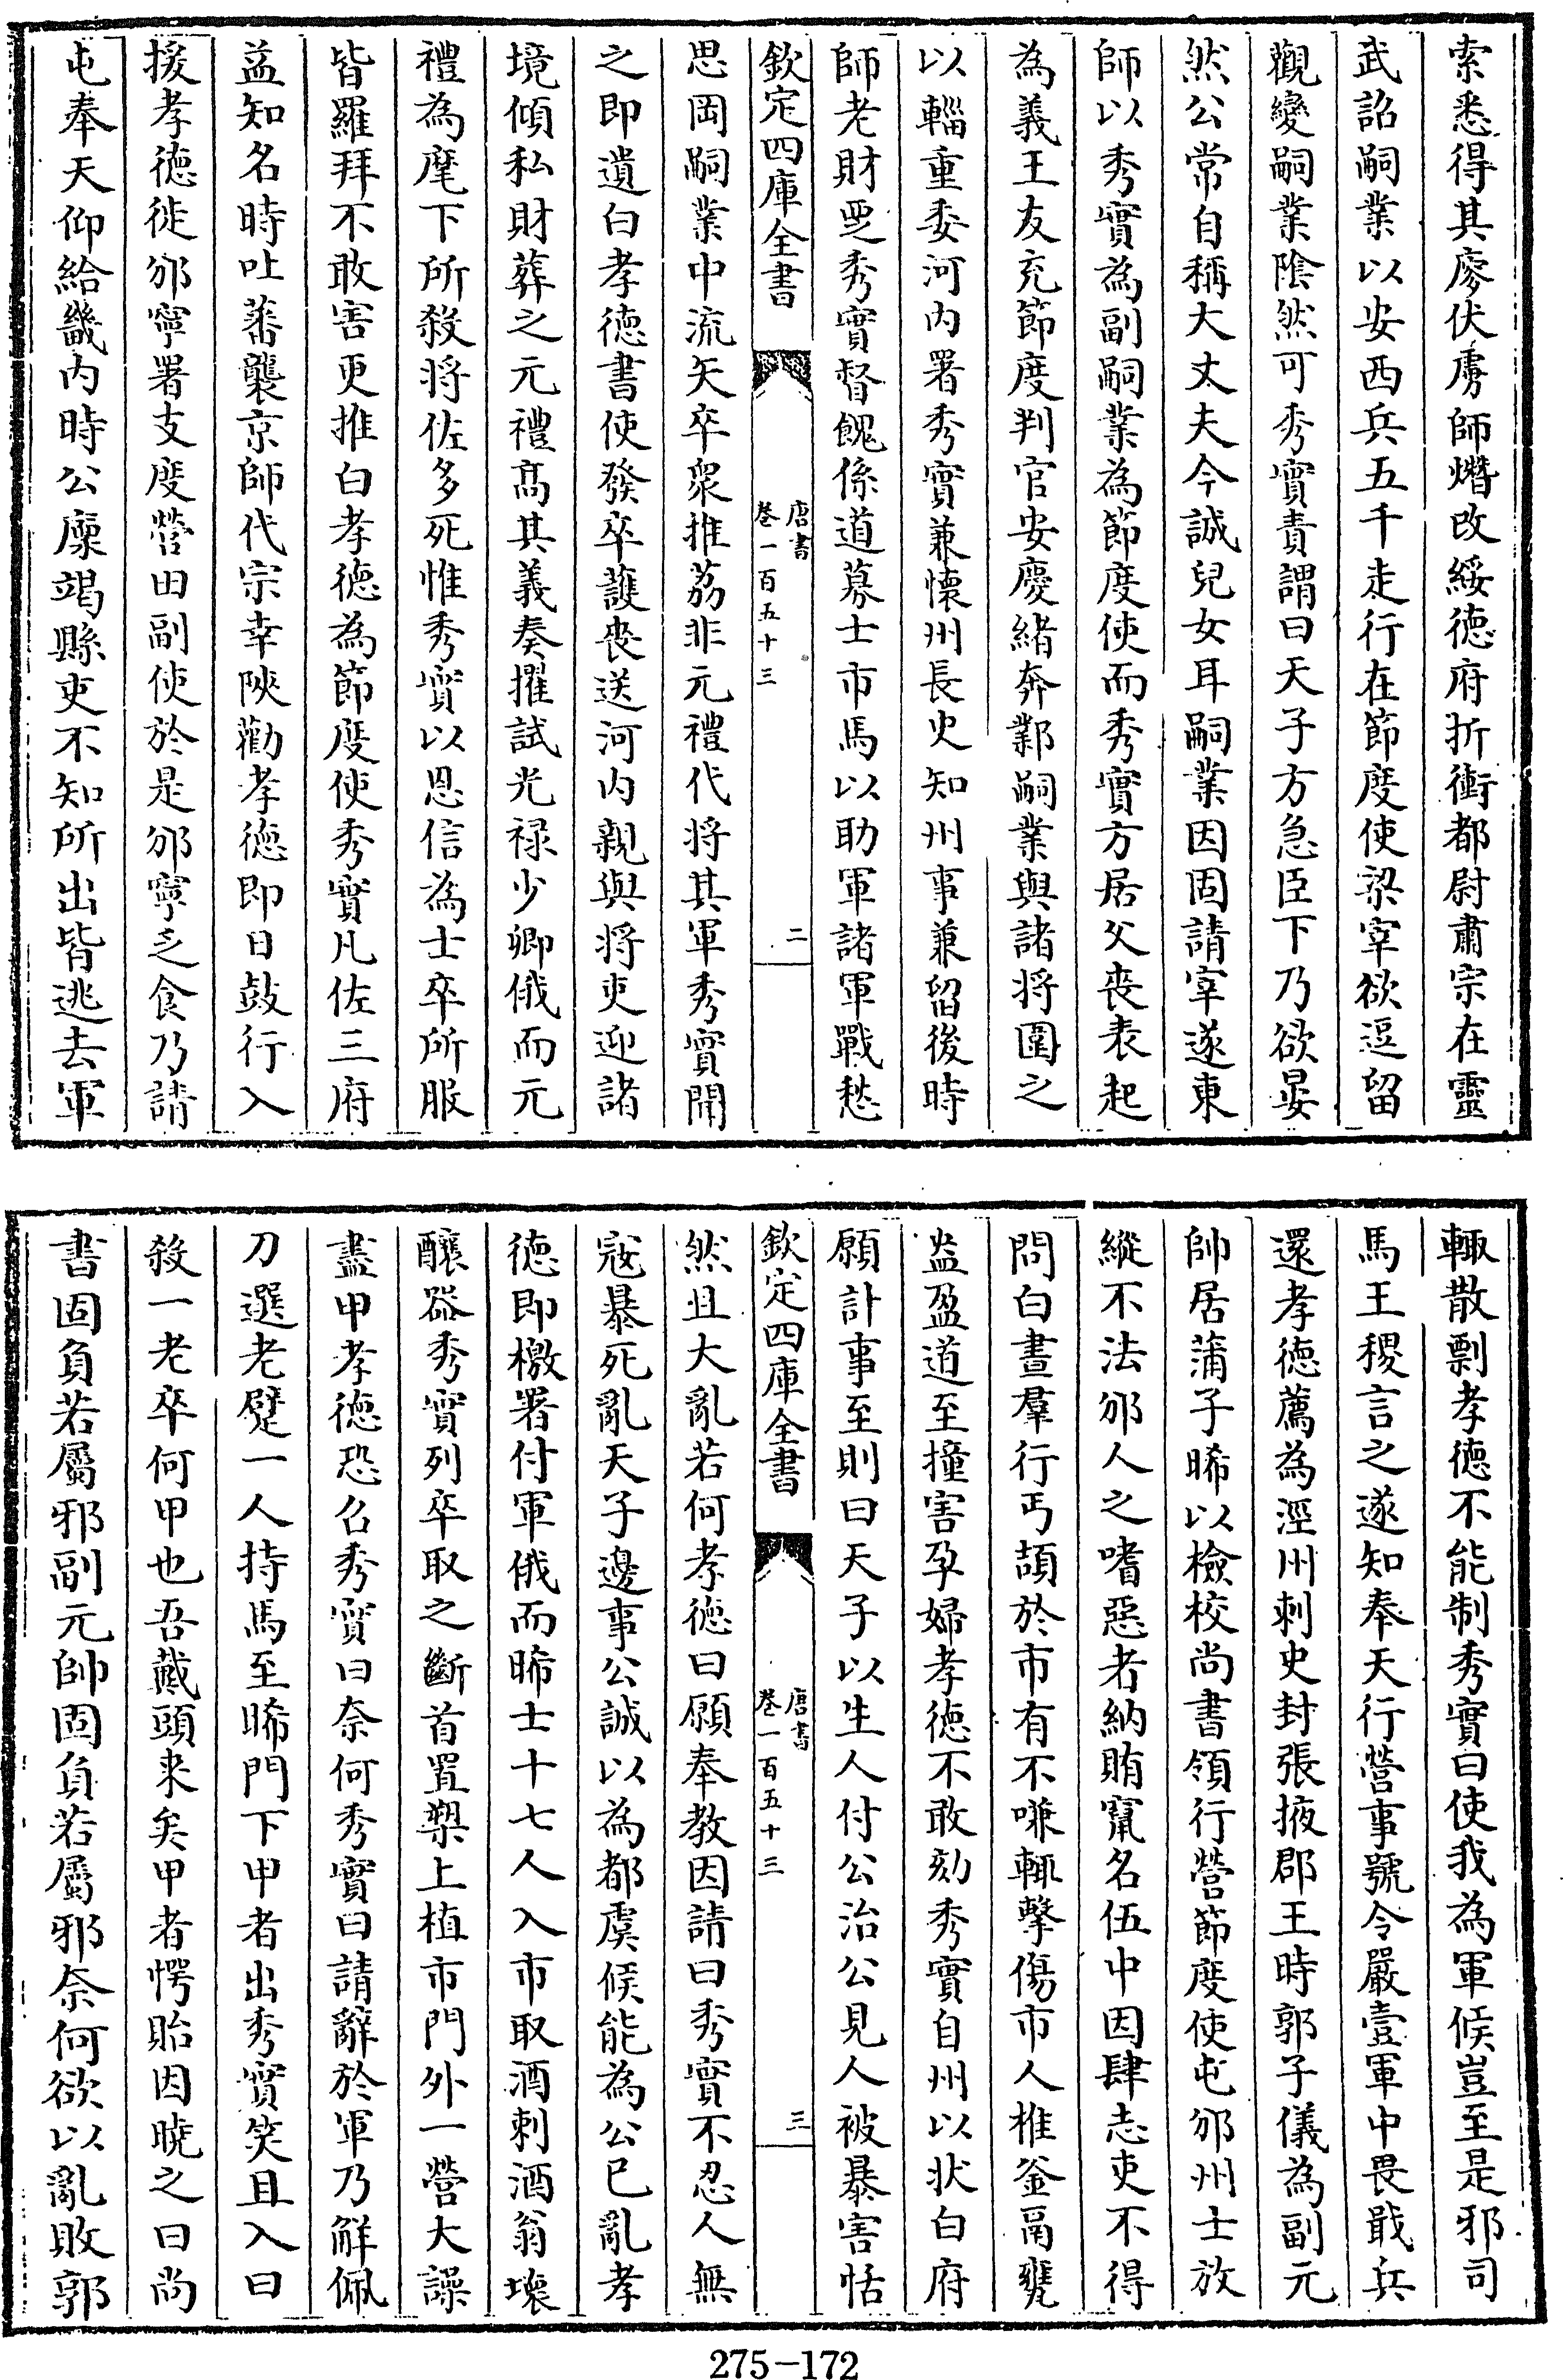 索悉得其廖伏虜師熸改綏徳府折衝都尉肅宗在靈
武詔嗣業以安西兵五千走行在節度使梁宰欲逗留
觀變嗣業隂然可秀實責謂曰天子方急臣下乃欲晏
然公常自稱大丈夫今誠兒女耳嗣業因固請宰遂東
師以秀實為副嗣業為節度使而秀實方居父喪表起
為義王友充節度判官安慶緒奔鄴嗣業與諸将圍之
以輜重委河内署秀實兼懷州長史知州事兼留後時
師老財覂秀實督餽係道募士市馬以助軍諸軍戰愁
欽定四庫全書
唐書
卷一百五十三
二
思岡嗣業中流矢卒衆推荔非元禮代将其軍秀實聞
之即遺白孝徳書使發卒護喪送河内親與将吏迎諸
境傾私財葬之元禮髙其義奏擢試光禄少卿俄而元
禮為麾下所殺将佐多死惟秀實以恩信為士卒所服
皆羅拜不敢害更推白孝徳為節度使秀實凡佐三府
益知名時吐蕃襲京師代宗幸陜勸孝徳即日鼓行入
援孝徳徙邠寧署支度營田副使於是邠寧乏食乃請
屯奉天仰給畿内時公廩竭縣吏不知所出皆逃去軍
輒散剽孝徳不能制秀實曰使我為軍候豈至是邪司
馬王稷言之遂知奉天行營事號令嚴壹軍中畏戢兵
還孝徳薦為涇州刺史封張掖郡王時郭子儀為副元
帥居蒲子晞以檢校尚書領行營節度使屯邠州士放
縱不法邠人之嗜惡者納賄竄名伍中因肆志吏不得
問白晝羣行丐頡於市有不嗛輒擊傷市人椎釜鬲甕
盎盈道至撞害孕婦孝徳不敢劾秀實自州以状白府
願計事至則曰天子以生人付公治公見人被暴害恬
欽定四庫全書
唐書
卷一百五十三
三
然且大亂若何孝徳曰願奉教因請曰秀實不忍人無
寇暴死亂天子邊事公誠以為都虞候能為公已亂孝
徳即檄署付軍俄而晞士十七人入市取酒刺酒翁壊
釀器秀實列卒取之斷首置槊上植市門外一營大譟
盡甲孝徳恐召秀實曰奈何秀實曰請辭於軍乃解佩
刀選老躄一人持馬至晞門下甲者出秀實笑且入曰
殺一老卒何甲也吾戴頭来矣甲者愕眙因曉之曰尚
書固負若屬邪副元帥固負若屬邪奈何欲以亂敗郭
275-172